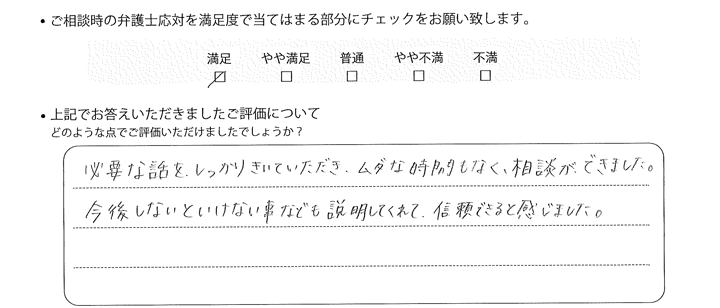 • ご相談時の弁護士応対を満足度で当てはまる部分にチェックをお願い致します。
満足 やや満足 普通 やや不満 不満
• 上記でお答えいただきましたご評価について
どのような点でご評価いただけましたでしょうか？
必要な話を、しっかりきいていただき、ムダな時間もなく、相談ができました。
今後しないといけない事なども説明してくれて、信頼できると感じました。